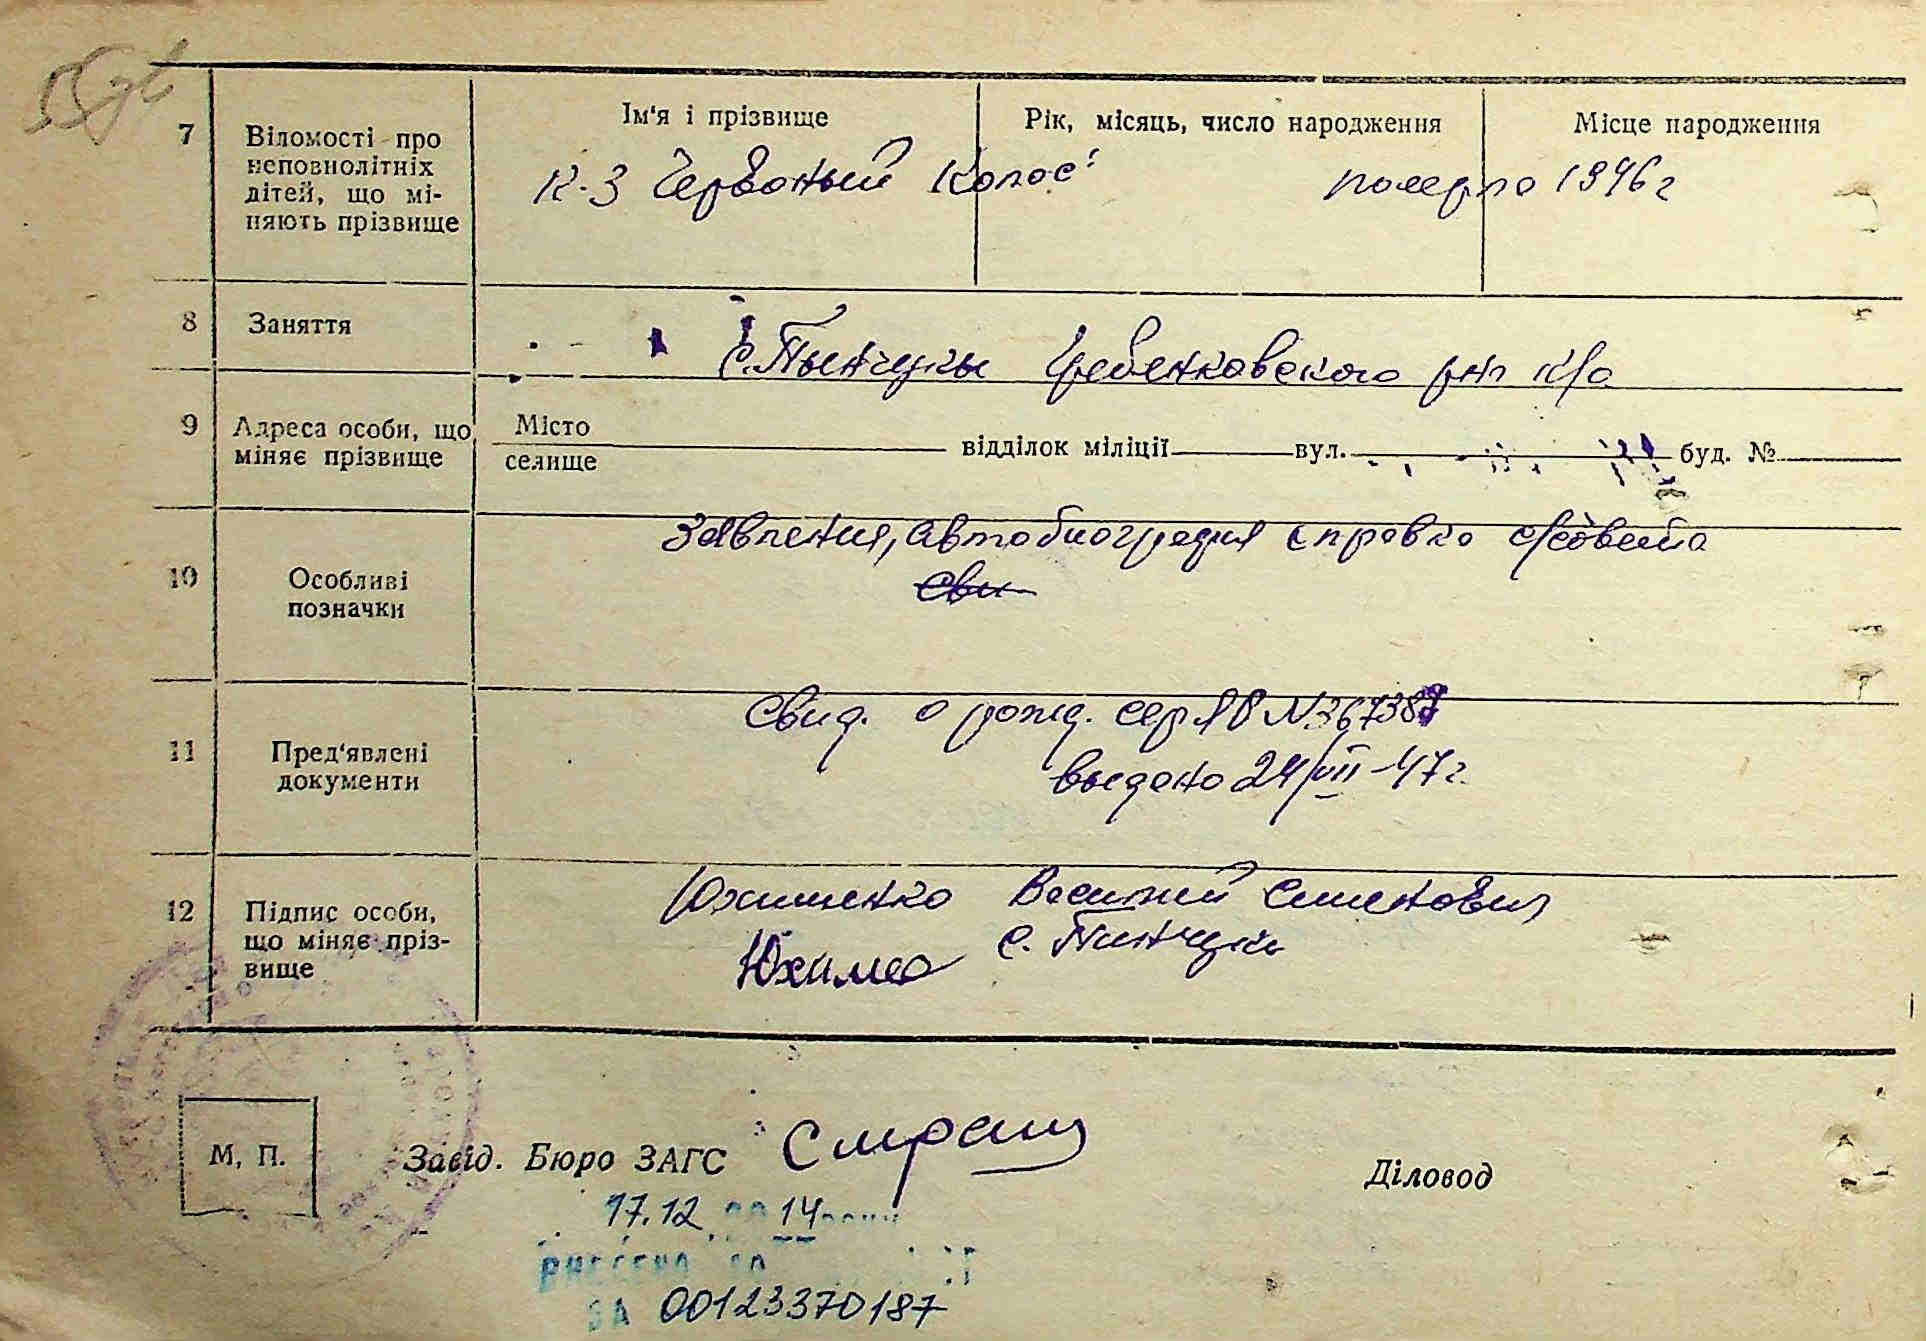 7
Відомості про
неповнолітніх
дітей, що мі-
няють прізвище
Ім'я і прізвище
Рік, місяць, число народження
Місце народження
К-з Червоный Колос
померло 1946 г
8
Заняття
с. Пынчуки Гребенковского рна К/о
9
Адреса особи, що
міняє прізвище
Місто
селище
відділок міліції
вул.
буд. №
10
Особливі
позначки
Заявления, автобиография справка с/совета
Сви
11
Пред'явлені
документи
Свид. о рожд. сер ЯР N 367387
выдано 24/VII-47 г.
12
Підпис особи,
що міняє пріз-
вище
Юхименко Василий Семенович
с. Пинчуки
Юхимео
М. П.
Завід. Бюро ЗАГС
Діловод
17.12 2014 року
ВНЕСЕНО ДО
ЗА 00123370187